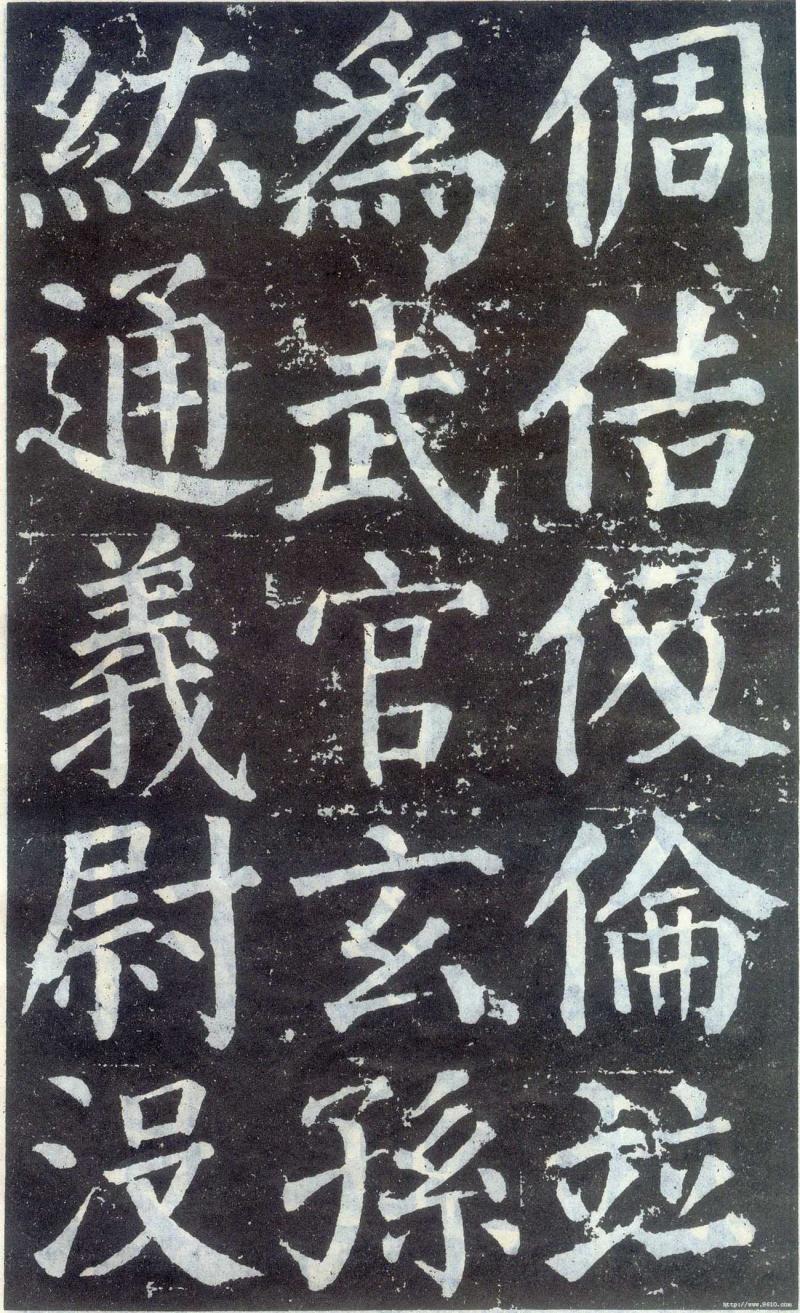 倜佶伋倫並
為武官玄孫
紘通義尉沒
http://www.9610.com